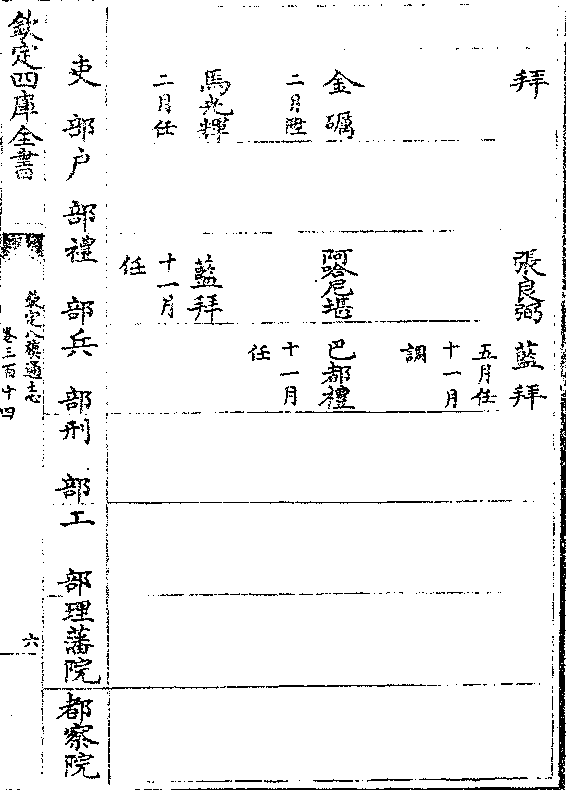 拜
張良弼
藍拜
五月任
十一月
調
金礪
二月陞
阿哈尼堪
巴都禮
十一月
任
馬光輝
二月任
藍拜
十一月
任
吏部
户部
禮部
兵部
刑部
工部
理藩院
都察院
欽定四庫全書
欽定八旗通志
卷三百十四
六